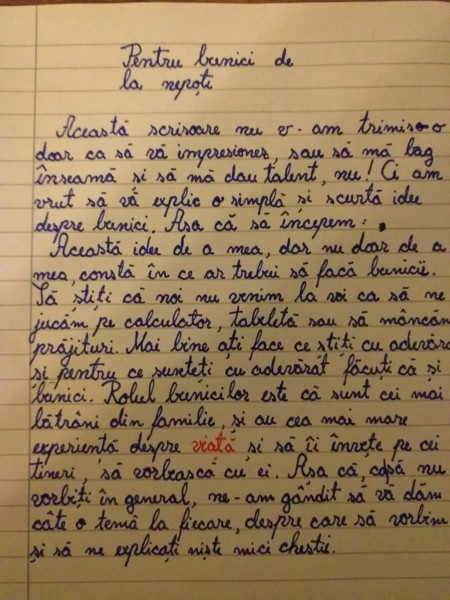 Pentru bunici de
la nepoți
Această scrisoare nu v-am trimis-o
doar ca să vă impresionez, sau să mă bag
în seamă și să mă dau talent, nu! Ci am
vrut să vă explic o simplă și scurtă idee
despre bunici. Așa că să începem:
Această idee de a mea, dar nu doar de a
mea, constă în ce ar trebui să facă bunicii.
Să știți că noi nu venim la voi ca să ne
jucăm pe calculator, tabletă sau să mâncăm
prăjituri. Mai bine ați face ce știți cu adevărat
și pentru ce sunteți cu adevărat făcuți că și
bunici. Rolul bunicilor este că sunt cei mai
bătrâni din familie, și au cea mai mare
experiență despre viață și să îi învețe pe cei
tineri, să vorbească cu ei. Așa că, nu
vorbiți în general, ne-am gândit să vă dăm
câte o temă la fiecare, despre care să vorbim
și să ne explicați niște mici chestii.